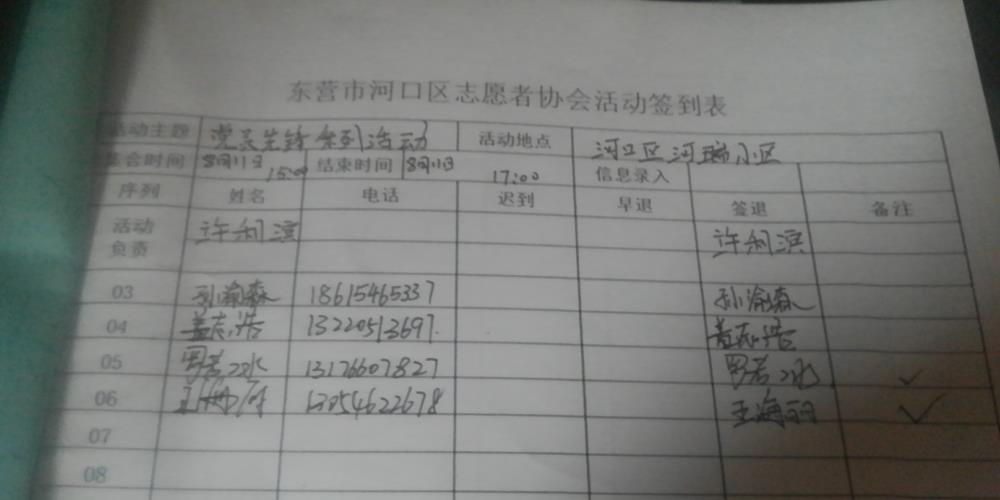 东营市河口区志愿者协会活动签到表
活动主题 党员先锋系列活动 活动地点 河口区河瑞小区
集合时间 8月11日 15:00 结束时间 8月11日 17:00 信息录入
序列 姓名 电话 迟到 早退 签退 备注
活动负责 许利滨 许利滨
03 孙渝森 18615465337 孙渝森
04 盖志浩 13220513697 盖志浩
05 13176607827 ✓
06 13054622678 王海丽 ✓
07
08